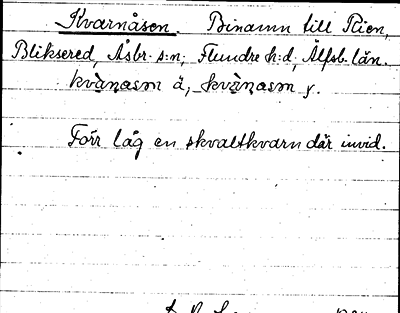 Kvarnåsen. Binamn till Rien,
Bliksered, Åsbr. s:n, Flundre h:d, Älfsb. län.
kvànasm ä, kvànasm y.
Förr låg en skvaltkvarn där invid.